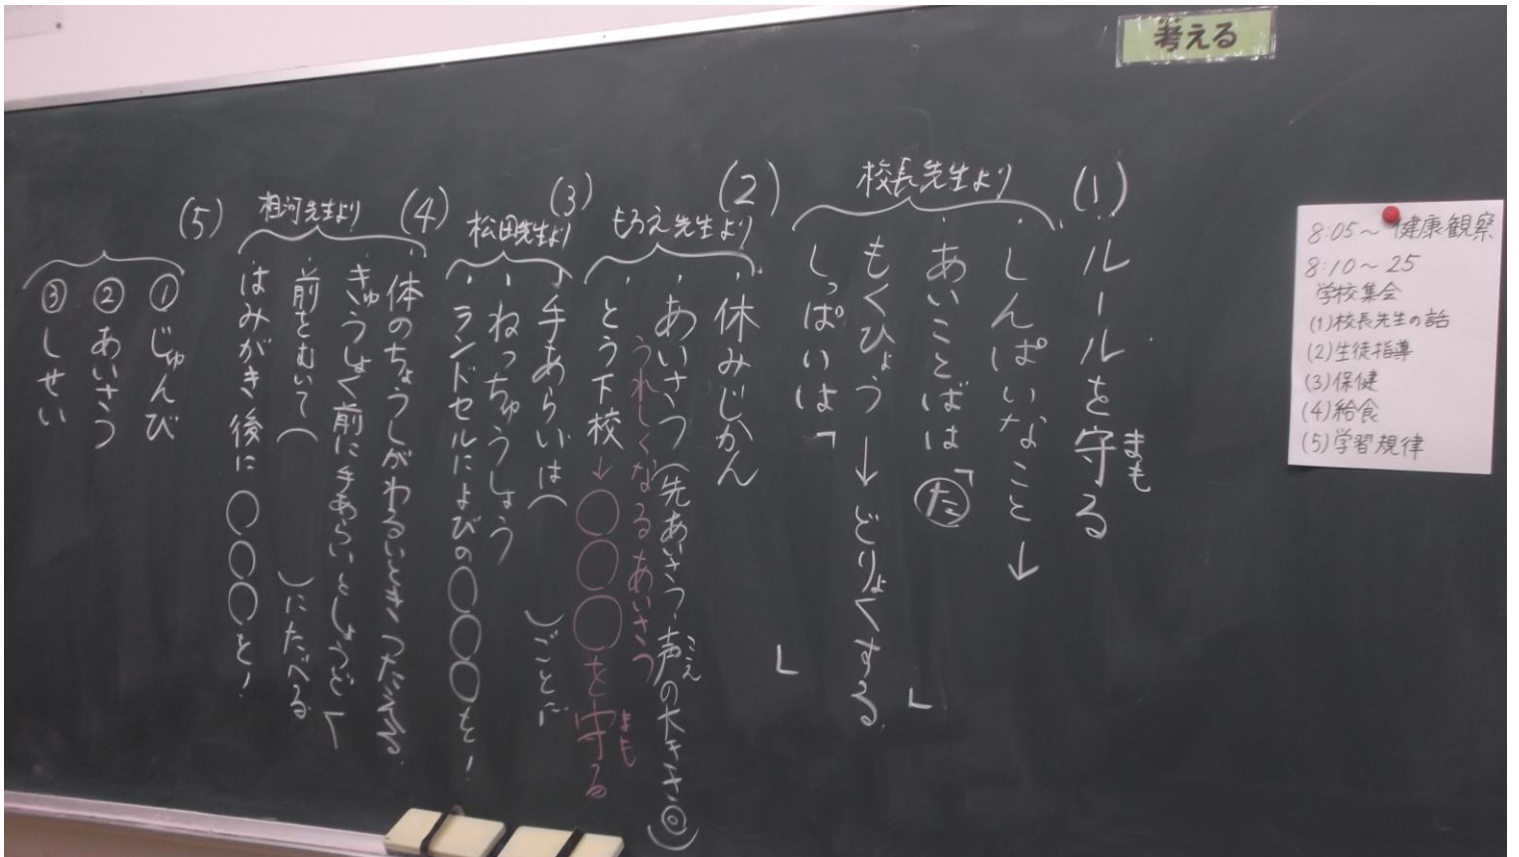 考える
8:05～健康観察
8:10～25
学校集会
(1)校長先生の話
(2)生徒指導
(3)保健
(4)給食
(5)学習規律
(1)
ルールを守る
まも
校長先生より
・しんぱいなこと→
・あいことばは「た」
もくひょう→どりょくする
しっぱいは「　」
(2)
もろえ先生より
・休みじかん
・あいさつ(先あいさつ・声の大きさ◎)
こえ
うれしくなるあいさつ
・とう下校→〇〇〇を守る
まも
(3)
松田先生より
・手あらいは(　)ごとに
・ねっちゅうしょう
・ランドセルによびの〇〇〇を!
(4)
相河先生より
・体のちょうしがわるいときつたえる
・きゅうしょく前に手あらいとしょうどく
・前をむいて(　)にたべる
・はみがき後に〇〇〇を!
(5)
①じゅんび
②あいさつ
③しせい